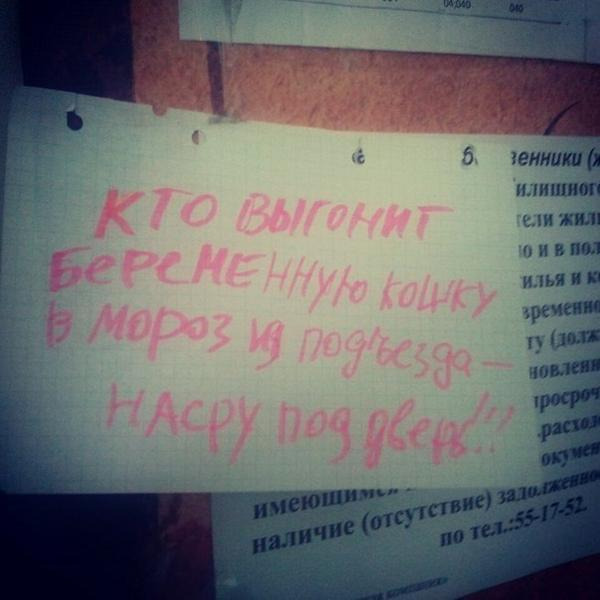 04,040 040
КТО ВЫГОНИТ
БЕРЕМЕННУЮ КОШКУ
В МОРОЗ ИЗ ПОДЪЕЗДА —
НАСРУ ПОД ДВЕРЬ!!!
венники (ж
илищног
ели жил
ю и в пол
илья и к
временно
ту (долж
новленн
просроч
расход
окумен
имеющимся
наличие (отсутствие) задолженно
по тел.:55-17-52.
компания»